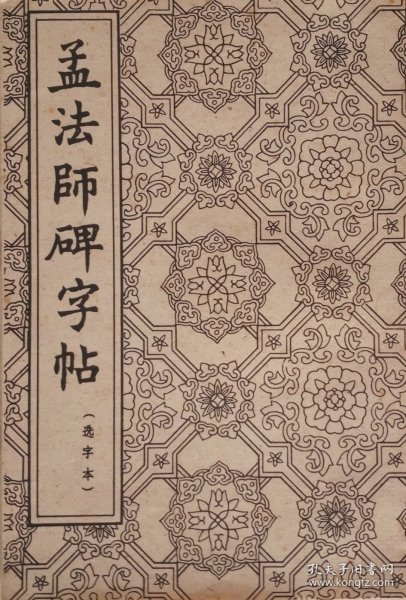 孟法師碑字帖
（选字本）
孔夫子旧书网
www.kongfz.com